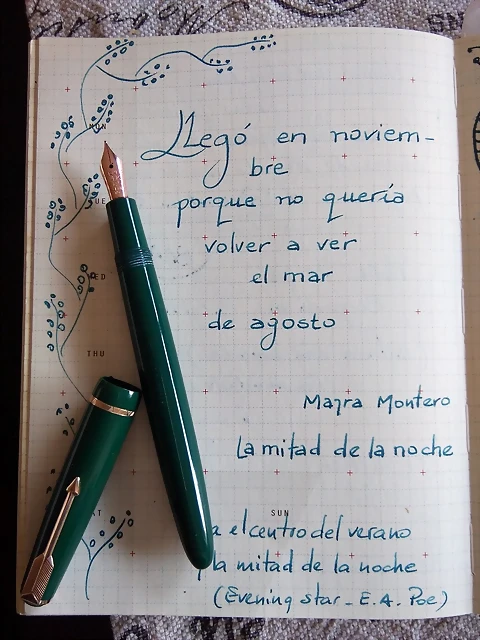 MON
Llegó en noviem-
bre
UE
porque no quería
volver a ver
ED
el mar
de agosto
THU
Mayra Montero
La mitad de la noche
AT
SUN
a el centro del verano
la mitad de la noche
(Evening Star - E.A. Poe)